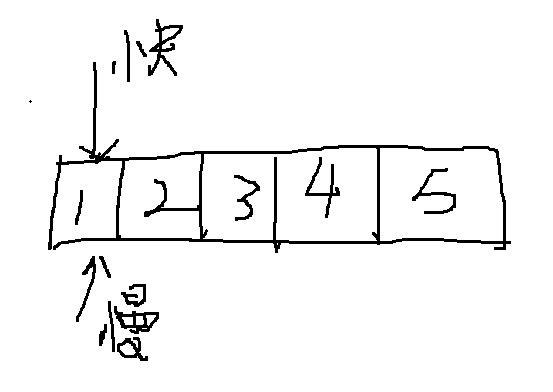 快
1 2 3 4 5
慢